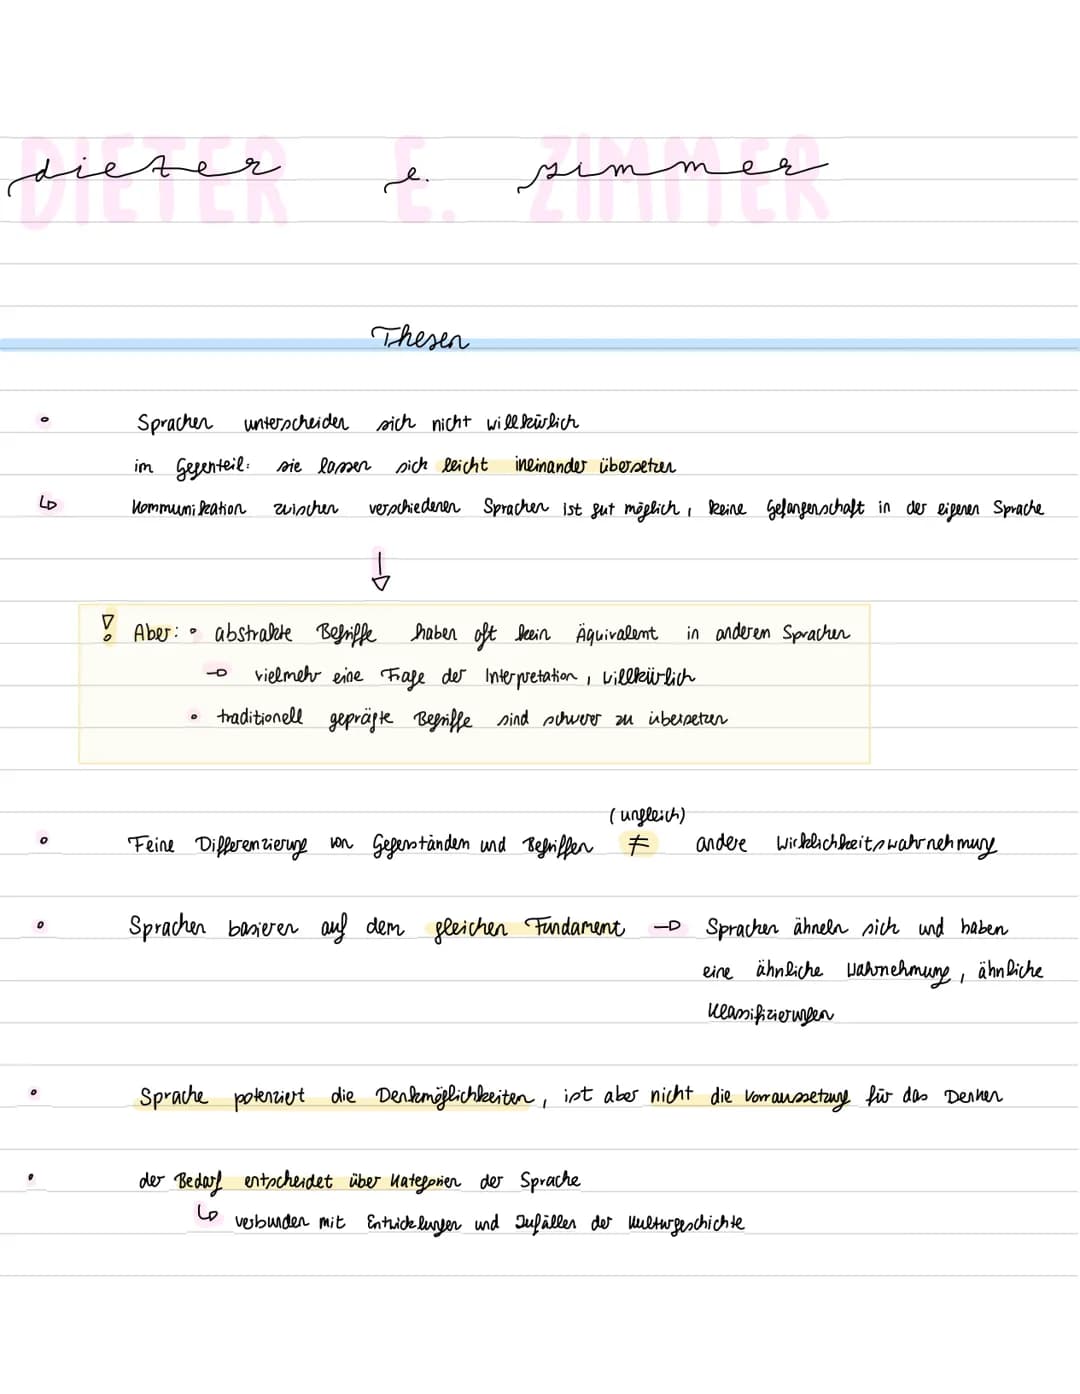 dieter e. zimmer
DIETER E. ZIMMER
Thesen
• Sprachen unterscheiden sich nicht willkürlich
im Gegenteil: sie lassen sich leicht ineinander übersetzen
↳ Kommunikation zwischen verschiedenen Sprachen ist gut möglich, keine Gefangenschaft in der eigenen Sprache
↓
! Aber: • abstrakte Begriffe haben oft kein Äquivalent in anderen Sprachen
→ vielmehr eine Frage der Interpretation, willkürlich
• traditionell geprägte Begriffe sind schwer zu übersetzen
(ungleich)
• Feine Differenzierung von Gegenständen und Begriffen ≠ andere Wirklichkeitswahrnehmung
• Sprachen basieren auf dem gleichen Fundament → Sprachen ähneln sich und haben
eine ähnliche Wahrnehmung, ähnliche
Klassifizierungen
• Sprache potenziert die Denkmöglichkeiten, ist aber nicht die Vorraussetzung für das Denken
• der Bedarf entscheidet über Kategorien der Sprache
↳ verbunden mit Entwicklungen und Zufällen der Kulturgeschichte